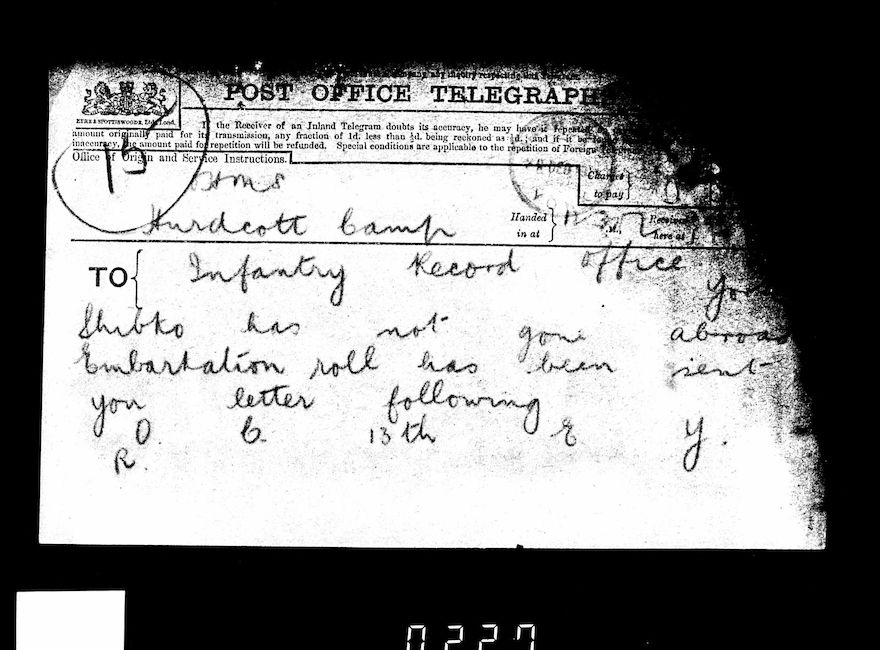 POST OFFICE TELEGRAPHS
EYRE & SPOTTISWOODE, Ltd., Lond.
If the Receiver of an Inland Telegram doubts its accuracy, he may have it repeated
amount originally paid for its transmission, any fraction of 1d. less than ½d. being reckoned as ½d.; and if it be
inaccuracy, the amount paid for repetition will be refunded. Special conditions are applicable to the repetition of Foreign
Office of Origin and Service Instructions.
15
OHMS
Charges
to pay
Hurdcott Camp
Handed
in at
Received
here at
TO Infantry Record Office
Shibko has not gone abroad
Embarkation roll has been sent
you letter following
O C 13th E Y.
R.
0227